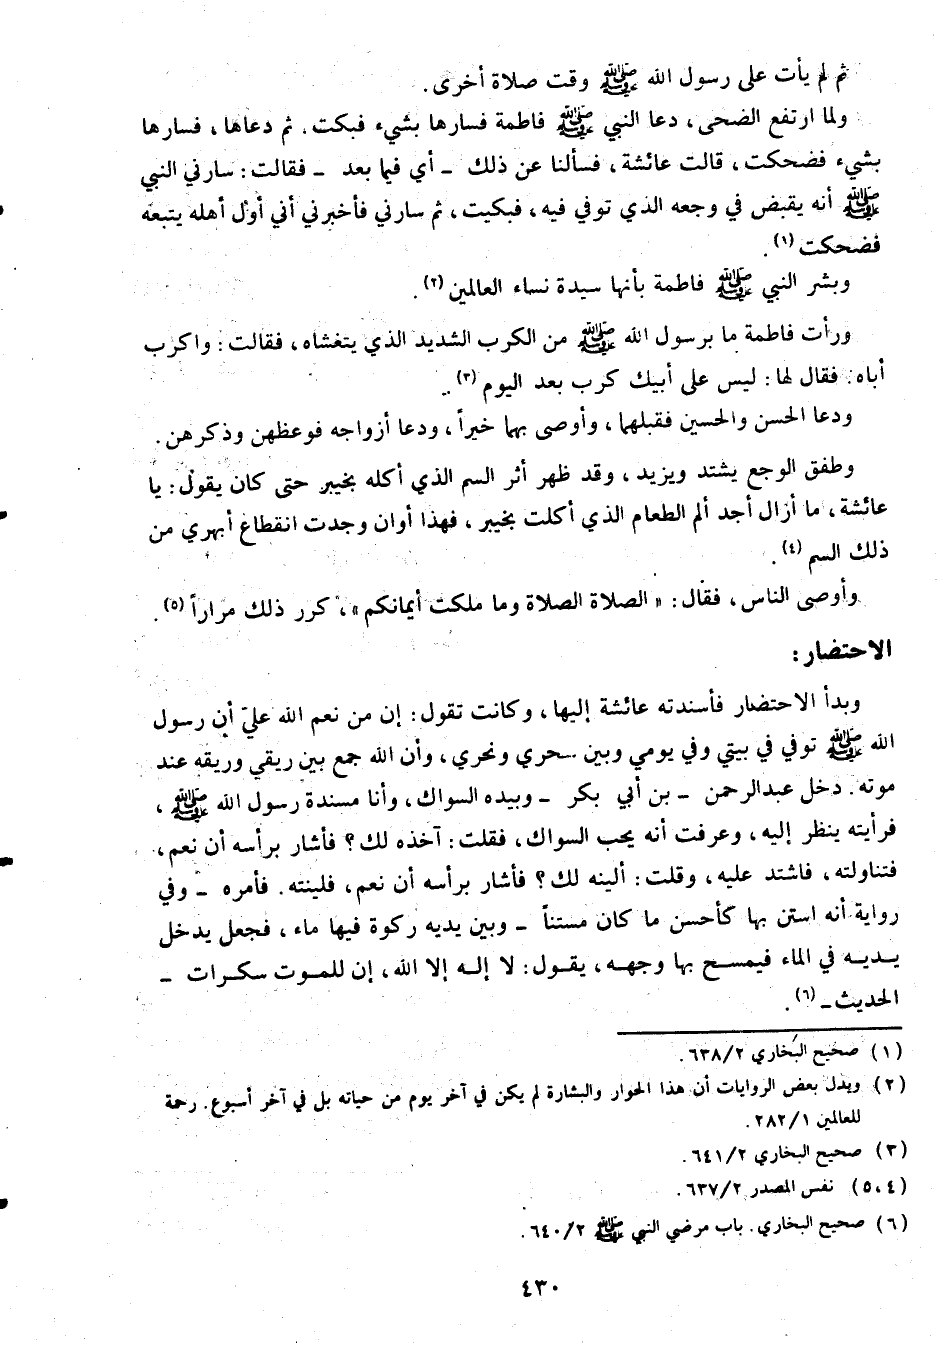 ثم لم يأت على رسول الله ﷺ وقت صلاة أخرى.
ولما ارتفع الضحى، دعا النبي ﷺ فاطمة فسارها بشيء فبكت. ثم دعاها، فسارها
بشيء فضحكت، قالت عائشة، فسألنا عن ذلك ـ أي فيما بعد ـ فقالت: سارني النبي
ﷺ أنه يقبض في وجعه الذي توفي فيه، فبكيت، ثم سارني فأخبرني أني أول أهله يتبعه
فضحكت (١).
وبشر النبي ﷺ فاطمة بأنها سيدة نساء العالمين (٢).
ورأت فاطمة ما برسول الله ﷺ من الكرب الشديد الذي يتغشاه، فقالت: واكرب
أباه. فقال لها: ليس على أبيك كرب بعد اليوم (٣).
ودعا الحسن والحسين فقبلهما، وأوصى بهما خيراً، ودعا أزواجه فوعظهن وذكرهن.
وطفق الوجع يشتد ويزيد، وقد ظهر أثر السم الذي أكله بخيبر حتى كان يقول: يا
عائشة، ما أزال أجد ألم الطعام الذي أكلت بخيبر، فهذا أوان وجدت انقطاع أبهري من
ذلك السم (٤).
وأوصى الناس، فقال: «الصلاة الصلاة وما ملكت أيمانكم»، كرر ذلك مراراً (٥).
الاحتضار:
وبدأ الاحتضار فأسندته عائشة إليها، وكانت تقول: إن من نعم الله عليّ أن رسول
الله ﷺ توفي في بيتي وفي يومي وبين سحري ونحري، وأن الله جمع بين ريقي وريقه عند
موته. دخل عبدالرحمن ـ بن أبي بكر ـ وبيده السواك، وأنا مسندة رسول الله ﷺ،
فرأيته ينظر إليه، وعرفت أنه يحب السواك، فقلت: آخذه لك؟ فأشار برأسه أن نعم،
فتناولته، فاشتد عليه، وقلت: ألينه لك؟ فأشار برأسه أن نعم، فلينته. فأمره ـ وفي
رواية أنه استن بها كأحسن ما كان مستناً ـ وبين يديه ركوة فيها ماء، فجعل يدخل
يديه في الماء فيمسح بها وجهه، يقول: لا إله إلا الله، إن للموت سكرات ـ
الحديث ـ (٦).
(١) صحيح البخاري ٦٣٨/٢.
(٢) ويدل بعض الروايات أن هذا الحوار والبشارة لم يكن في آخر يوم من حياته بل في آخر أسبوع. رحمة
للعالمين ٢٨٢/١.
(٣) صحيح البخاري ٦٤١/٢.
(٥،٤) نفس المصدر ٦٣٧/٢.
(٦) صحيح البخاري. باب مرضي النبي ﷺ ٦٤٠/٢.
٤٣٠